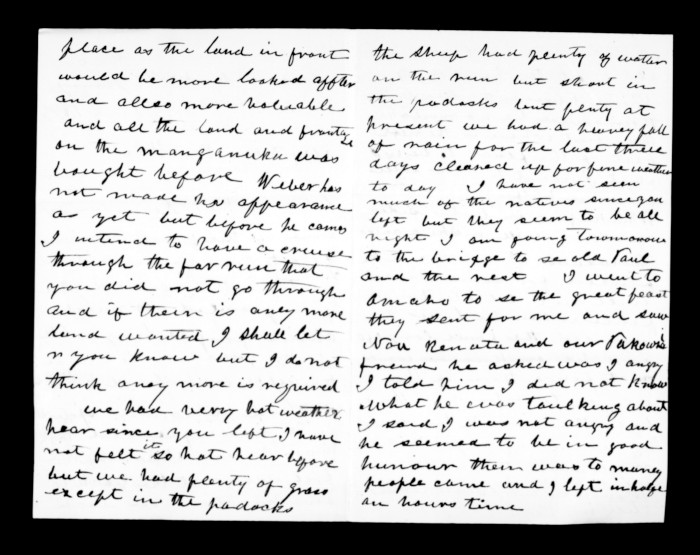 place as the land in front
would be more looked affter
and allso more valuable
and all the land and frontage
on the manganuka was
bought before Weber has
not made his appearance
as yet but before he comes
I intend to have a creuse
through the far run that
you did not go through
and if theire is aney more
land wanted I shall let
you know but I do not
think aney more is required
we had very hot weather
hear since you left I have
not felt its so hot hear before
but we had plenty of grass
except in the padocks
the sheep had plenty of watter
on the run but short in
the padocks but plenty at
present we had a heavey fall
of rain for the last three
days cleaned up for fine weather
to day I have not seen
much of the natives since you
left but they seem to be all
right I am going tomorrow
to the bridge to se old Paul
and the rest I went to
Omaho to se the great feast
they sent for me and saw
Noa Renata and our Pakowhi
friend he asked was I angry
I told him I did not know
what he was taulking about
I said I was not angry and
he seemed to be in good
humour theire was to maney
people came and I left in half
an hours time